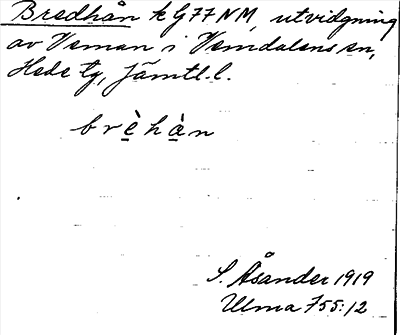 Bredhån k G77 NM, utvidgning
av Veman i Vemdalens sn,
Hede tg, Jämtl. l.
brè̲hà̲n
S. Åsander 1919
Ulma 755:12